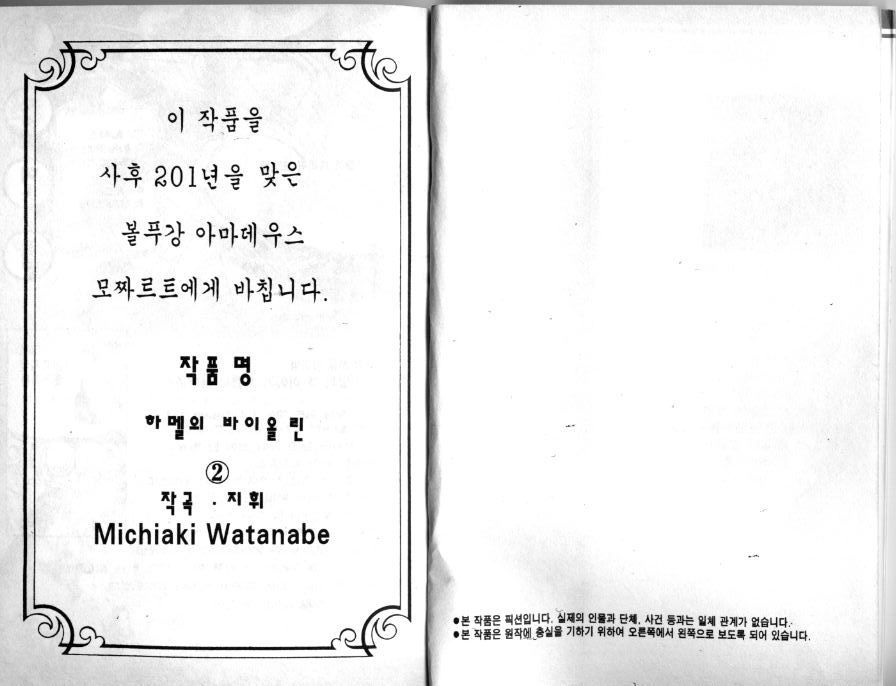 이 작품을
사후 201년을 맞은
볼푸강 아마데우스
모짜르트에게 바칩니다.
작품명
하멜의 바이올린
②
작곡 · 지휘
Michiaki Watanabe
●본 작품은 픽션입니다. 실재의 인물과 단체, 사건 등과는 일체 관계가 없습니다.
●본 작품은 원작에 충실을 기하기 위하여 오른쪽에서 왼쪽으로 보도록 되어 있습니다.